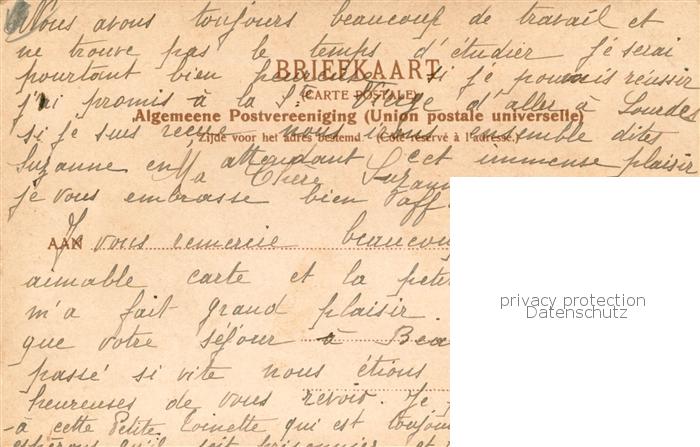 Nous avons toujours beaucoup de travail et
ne trouve pas le temps d'étudier je serai
pourtant bien heureuse si je pouvais réussir
BRIEFKAART
(CARTE POSTALE)
j'ai promis à la Ste Vierge d'aller à Lourdes
Algemeene Postvereeniging (Union postale universelle)
si je suis reçue nous irons ensemble dites
Zijde voor het adres bestemd. (Côté réservé à l'adresse.)
Suzanne en attendant cet immense plaisir
je vous embrasse bien aff
Ma Chère Suzanne
AAN
Je vous remercie beaucoup
aimable carte et la petite
m'a fait grand plaisir.
que votre séjour à Bea
passé si vite nous étions
heureuses de vous revoir. Je
à cette Petite Toinette qui est toujours
espérons qu'il soit prisonnier et
privacy protection
Datenschutz